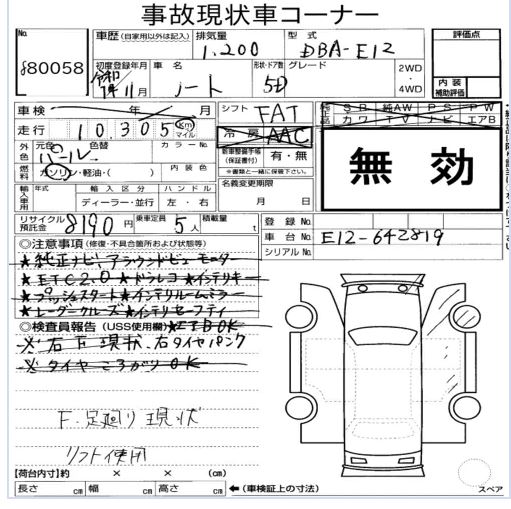 事故現状車コーナー
No. f80058
車歴 (自家用以外は記入) 排気量 1.200 型式 DBA-E12 評価点
初度登録年月 令和 1年11月 車名 ノート 形状・ドア数 5D グレード 2WD ・ 4WD 内装補助評価
車検 年 月 シフト FAT SB 純AW PS PW
走行 10,305 Km マイル 冷房 AAC カワ TV ナビ エアB
外色 元色 パール 色替 カラーNo. 新車整備手帳(保証書付) 有・無 無効
燃料 ガソリン・軽油・( ) 内装色 ※書類と一緒に保管して下さい。
輸入車用 年式 輸入区分 ハンドル 名義変更期限
ディーラー・並行 左・右 月 日
リサイクル預託金 8190 円 乗車定員 5 人 積載量 t 登録No.
車台No. E12-642819
シリアルNo.
◎注意事項 (修復・不具合箇所および状態等)
★純正ナビ アラウンドビューモニター
★ETC2.0 ★ドラレコ ★インテリキー
★プッシュスタート ★インテリルームミラー
★レーダークルーズ ★インテリセーフティ
◎検査員報告 (USS使用欄) ★EFBOK
※右下現状、右タイヤパンク
※タイヤころがりOK
F.足廻り現状
リフト使用
【荷台内寸】約 × × (cm)
長さ cm 幅 cm 高さ cm ←(車検証上の寸法) スペア